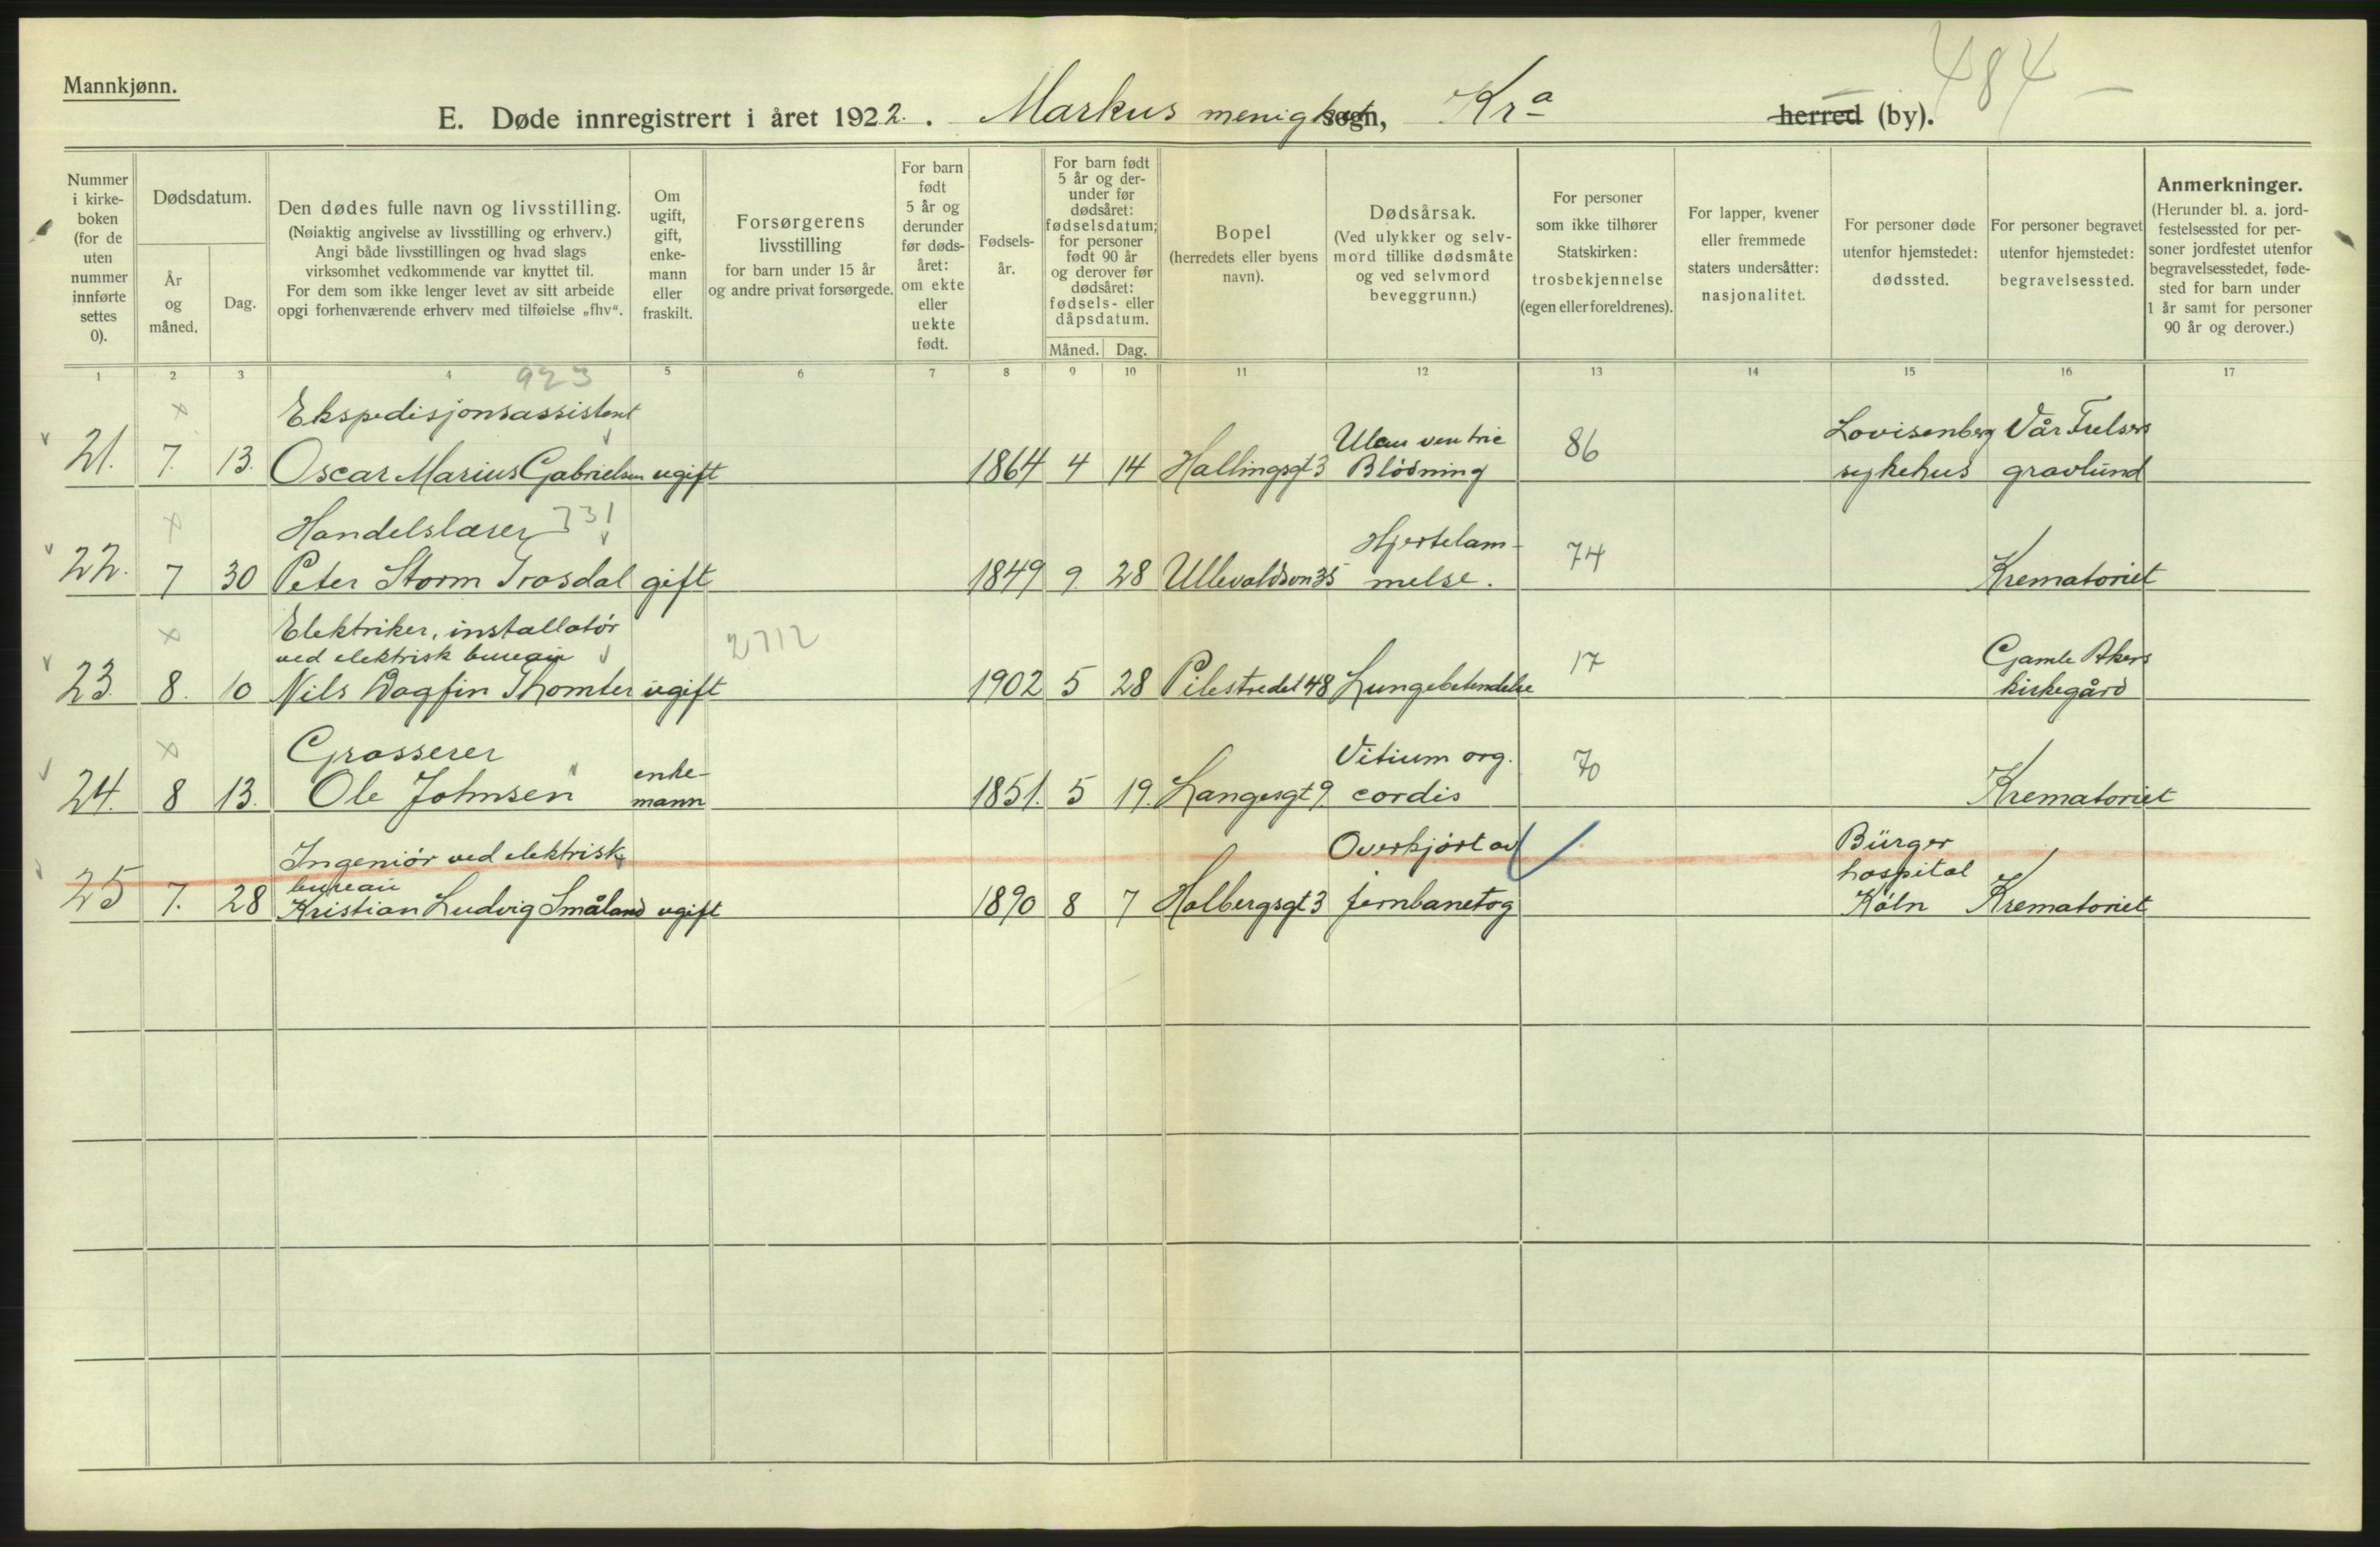 484
Mannkjønn.
E. Døde innregistrert i året 1922. Markus menighet sogn, Kra herred (by).
Nummer i kirkeboken (for de uten nummer innførte settes 0).
Dødsdatum.
År og måned.
Dag.
Den dødes fulle navn og livsstilling.
(Nøiaktig angivelse av livsstilling og erhverv.)
Angi både livsstillingen og hvad slags
virksomhet vedkommende var knyttet til.
For dem som ikke lenger levet av sitt arbeide
opgi forhenværende erhverv med tilføielse „fhv".
Om ugift, gift, enkemann eller fraskilt.
Forsørgerens
livsstilling
for barn under 15 år
og andre privat forsørgede.
For barn født 5 år og derunder før dødsåret: om ekte eller uekte født.
Fødselsår.
For barn født 5 år og derunder før dødsåret: fødselsdatum; for personer født 90 år og derover før dødsåret: fødsels- eller dåpsdatum.
Måned. Dag.
Bopel
(herredets eller byens navn).
Dødsårsak.
(Ved ulykker og selvmord tillike dødsmåte og ved selvmord beveggrunn.)
For personer som ikke tilhører Statskirken: trosbekjennelse (egen eller foreldrenes).
For lapper, kvener eller fremmede staters undersåtter: nasjonalitet.
For personer døde utenfor hjemstedet: dødssted.
For personer begravet utenfor hjemstedet: begravelsessted.
Anmerkninger.
(Herunder bl. a. jordfestelsessted for personer jordfestet utenfor begravelsesstedet, fødested for barn under 1 år samt for personer 90 år og derover.)
1 2 3 4 5 6 7 8 9 10 11 12 13 14 15 16 17
923
Ekspedisjonsassistent
21. 7. 13. Oscar Marius Gabrielsen ugift 1864 4 14 Hallingsgt 3 Ulcus ventric Blödning 86 Lovisenberg sykehus Vår Frelsers gravlund
Handelslærer 731
22. 7 30 Peter Storm Trosdal gift 1849 9 28 Ullevoldsvn 35 Hjertelammelse. 74 Krematoriet
Elektriker, installatör
ved elektrisk bureau 2712
23 8. 10 Nils Dagfin Thomter ugift 1902 5 28 Pilestredet 48 Lungebetendelse 17 Gamle Akers kirkegård
Grosserer
24. 8 13. Ole Johnsen enkemann 1851. 5 19. Langesgt 9 Vitium org. cordis 70 Krematoriet
Ingeniör ved elektrisk
bureau
25 7. 28 Kristian Ludvig Småland ugift 1890 8 7 Holbergsgt 3 Overkjört av jernbanetog Bürger hospital Köln Krematoriet